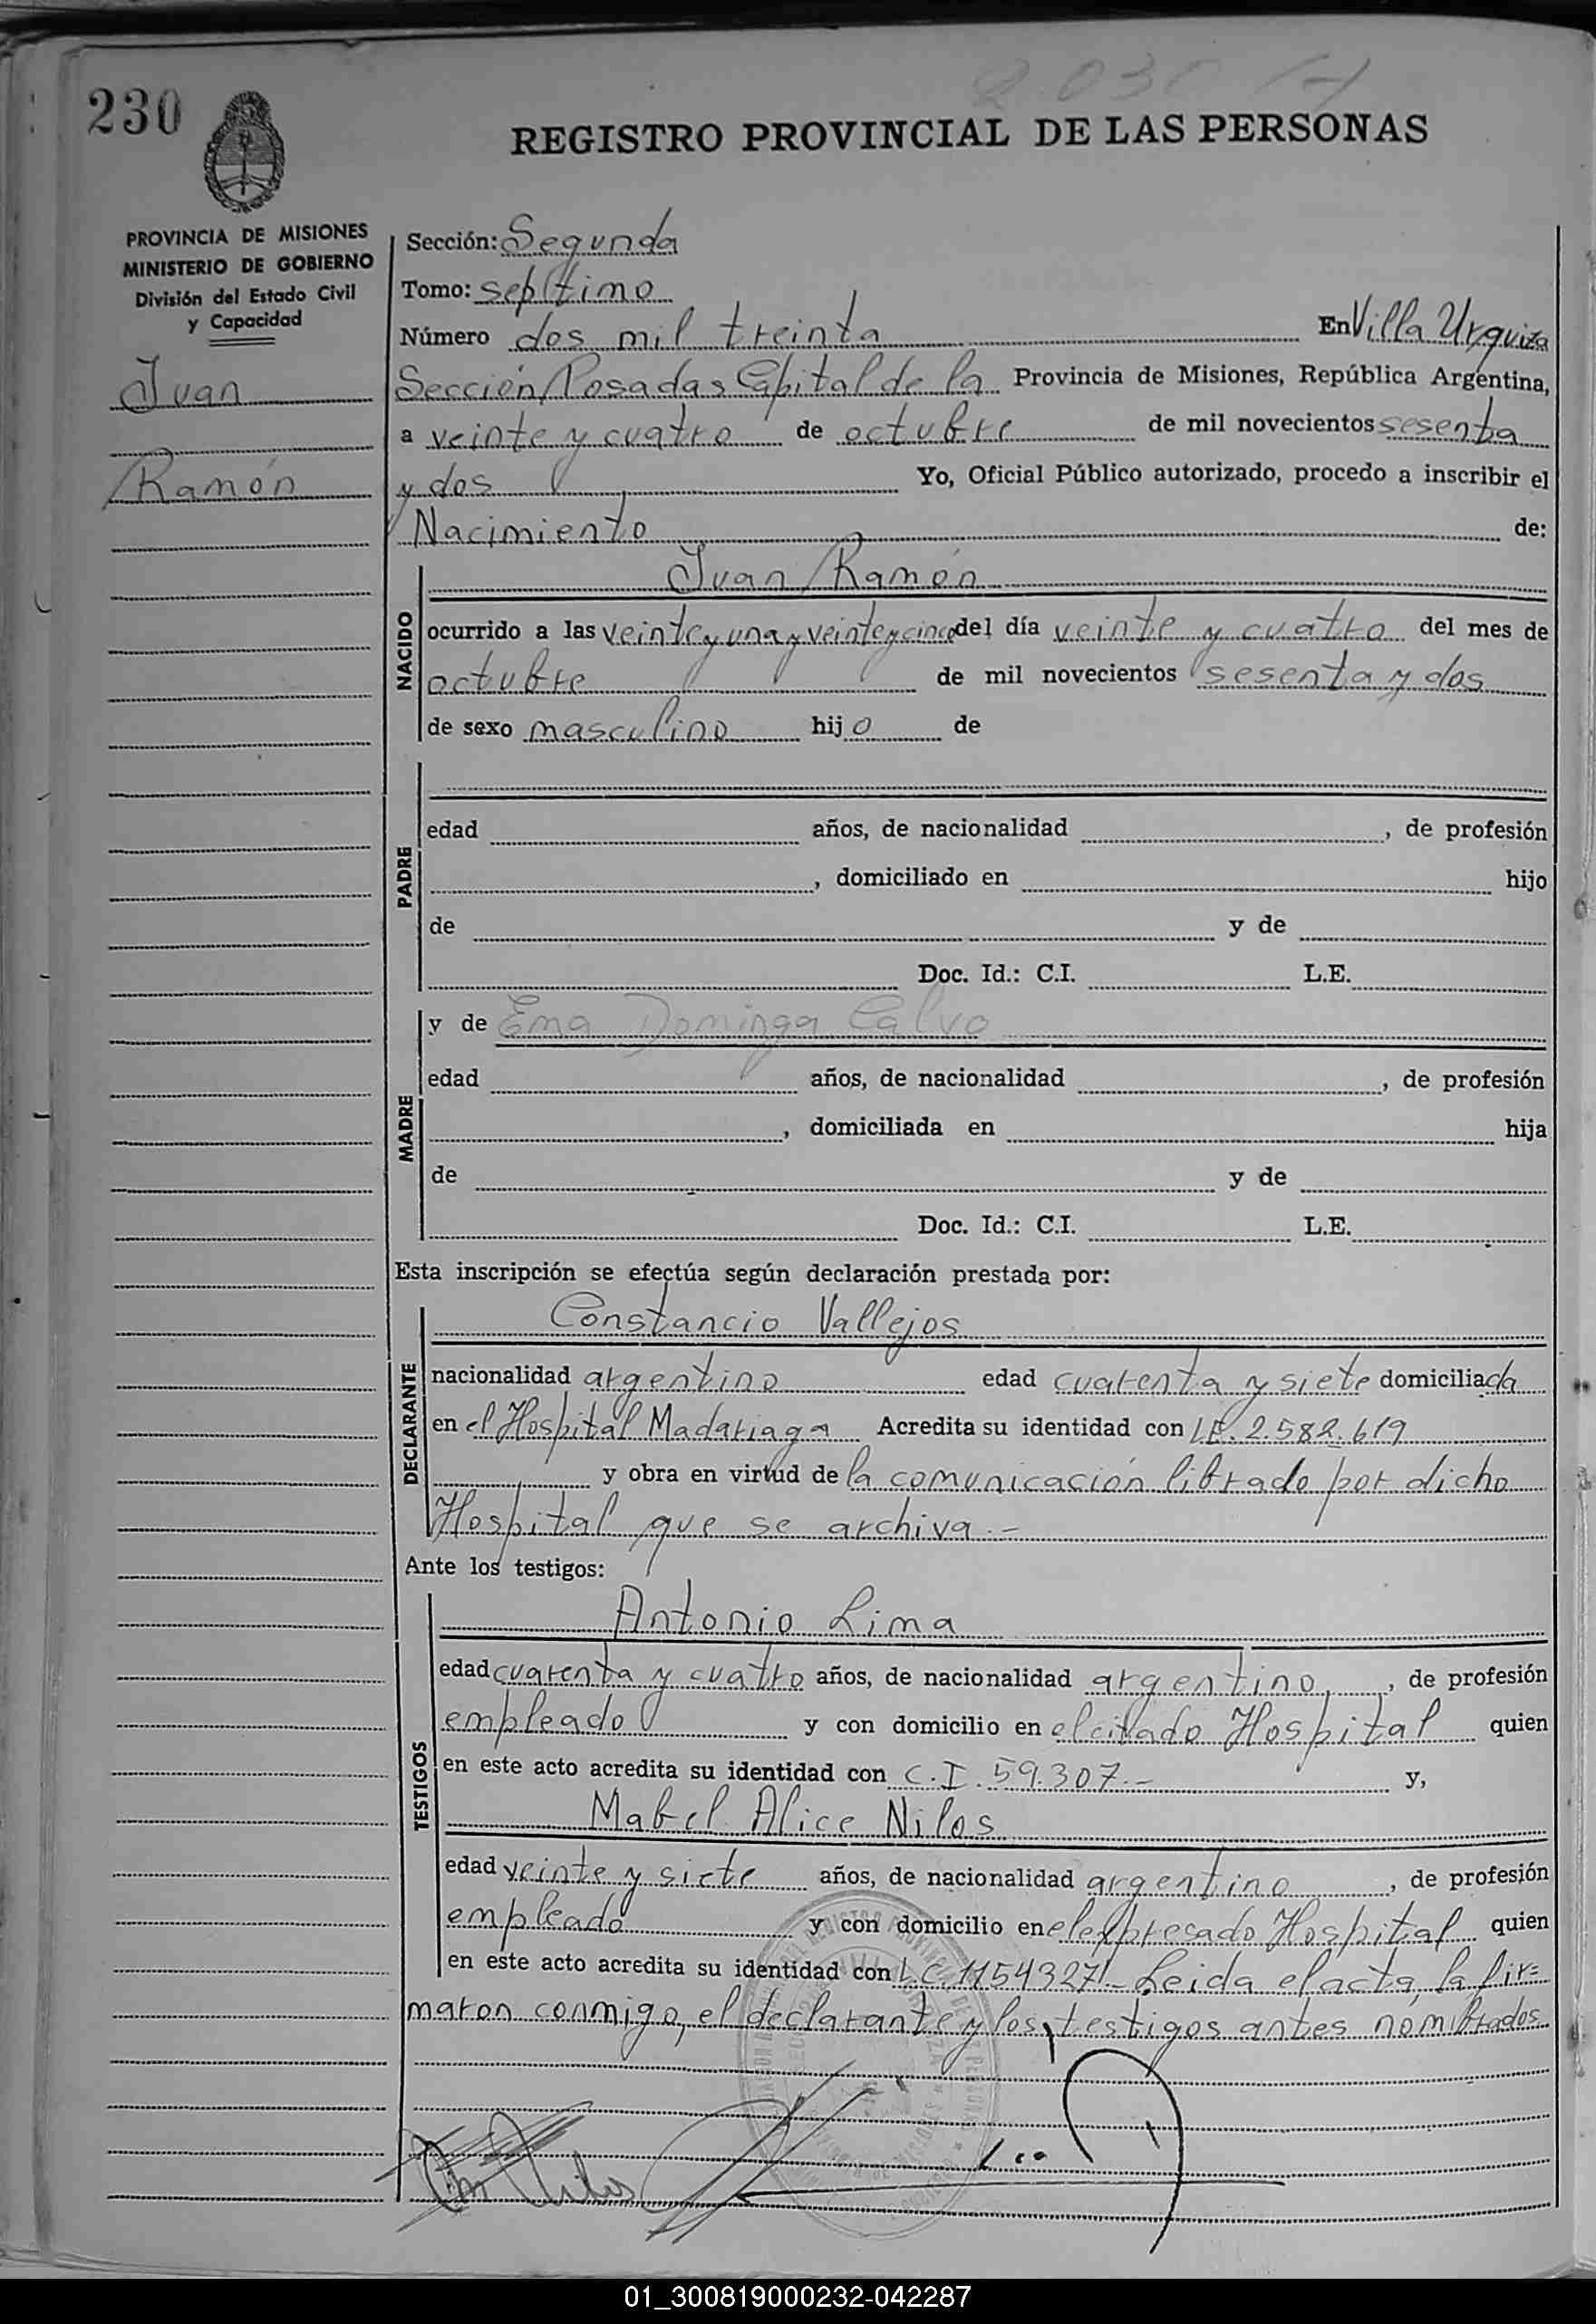 230
REGISTRO PROVINCIAL DE LAS PERSONAS
PROVINCIA DE MISIONES
MINISTERIO DE GOBIERNO
División del Estado Civil
y Capacidad
Juan
Ramón
Sección: Segunda
Tomo: septimo
Número dos mil treinta En Villa Urquiza
Sección Posadas Capital de la Provincia de Misiones, República Argentina,
a veinte y cuatro de octubre de mil novecientos sesenta
y dos Yo, Oficial Público autorizado, procedo a inscribir el
Nacimiento de:
NACIDO
Juan Ramón
ocurrido a las veinte y una y veinte y cinco del día veinte y cuatro del mes de
octubre de mil novecientos sesenta y dos
de sexo masculino hijo de
PADRE
edad años, de nacionalidad , de profesión
, domiciliado en hijo
de y de
Doc. Id.: C.I. L.E.
MADRE
y de Ema Dominga Calvo
edad años, de nacionalidad , de profesión
, domiciliada en hija
de y de
Doc. Id.: C.I. L.E.
Esta inscripción se efectúa según declaración prestada por:
DECLARANTE
Constancio Vallejos
nacionalidad argentino edad cuarenta y siete domiciliada
en el Hospital Madariaga Acredita su identidad con L.E. 2.582.619
y obra en virtud de la comunicación librado por dicho
Hospital que se archiva.-
Ante los testigos:
TESTIGOS
Antonio Lima
edad cuarenta y cuatro años, de nacionalidad argentino, de profesión
empleado y con domicilio en el citado Hospital quien
en este acto acredita su identidad con C.I. 59.307.- y,
Mabel Alice Nilos
edad veinte y siete años, de nacionalidad argentino, de profesión
empleado y con domicilio en el expresado Hospital quien
en este acto acredita su identidad con L.C. 1154327.- Leida el acta, la fir=
maron conmigo, el declarante y los testigos antes nombrados
01_300819000232-042287